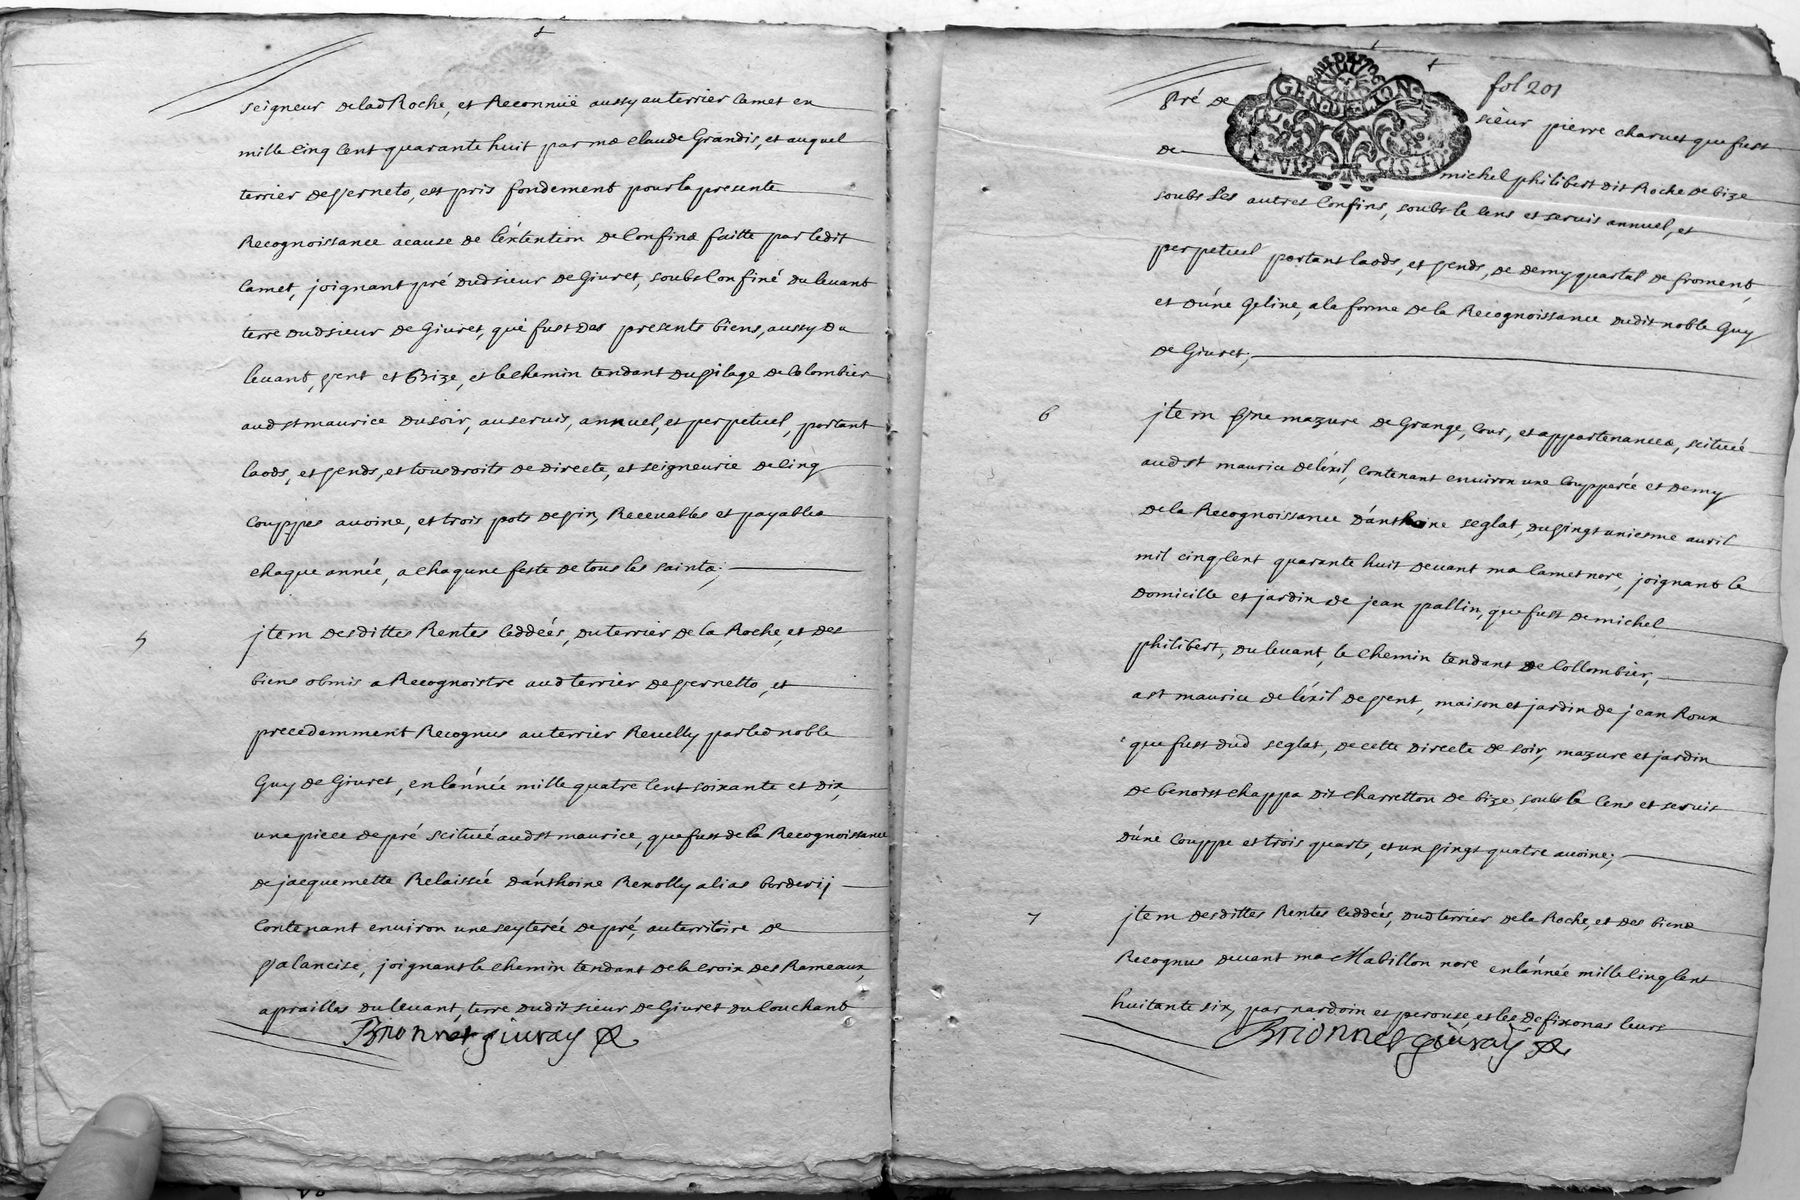 seigneur delad Roche, et Reconnüe aussy au terrier Camet en
mille cinq cent quarante huit par me Claude Grandis, et auquel
terrier de verneto, est pris fondement pour la presente
Recognoissance acause de l'extention de confine faitte par ledit
Camet, joignant pré dudsieur de Giuret, soubs confiné du leuant
terre dudsieur de Giuret, qui fust des presents biens, aussy du
leuant, vent et Bize, et le chemin tendant du vilage de Colombier
aud st maurice du soir, au seruis, annuel, et perpetuel, portant
laods, et vends, et tous droits de directe, et seigneurie de cinq
Couppes auoine, et trois pots de vin, Receuables et payables
chaque année, a chaqune feste de tous les saints;
5
jtem desdittes Rentes Ceddéés, du terrier de la Roche, et des
biens obmis a Recognoistre aud terrier de vernetto, et
precedemment Recognus au terrier Reuelly par led noble
Guy de Giuret, en l'année mille quatre cent soixante et dix,
une piece de pré scituéé aud st maurice, que fust de la Recognoissance
de jacquemette Relaisséé d'anthoine Renolly alias borderij
Contenant enuiron une seyteréé de pré, au territoire de
valancise, joignant le chemin tendant de la croix des Rameaux,
aprailles du leuant, terre dudit sieur de Giuret du couchant
Brionnet giuray
fol 201
GEN. DE LION
pré de sieur pierre charuet que fust
de michel philibert dit Roche de bize
soubs ses autres confins, soubs le cens et seruis annuel, et
perpetuel portant laods, et vends, de demy quartal de froment,
et d'une geline, a la forme de la Recognoissance dudit noble Guy
de Giuret;
6
jtem une mazure de Grange, Cour, et appartenances, scituéé
aud st maurice de l'exil, contenant enuiron une Coupperéé et demy
de la Recognoissance d'anthoine seglat, du vingt uniesme auril
mil cinq cent quarante huit deuant me Camet nore, joignant le
Domicille et jardin de jean pallin, que fust de michel
philibert, du leuant, le chemin tendant de Collombier,
a st maurice de l'exil de vent, maison et jardin de jean Roux
que fust dud seglat, de cette directe de soir, mazure et jardin
de benoist chappa dit charretton de bize, soubs le cens et seruis
d'une Couppe et trois quarts, et un vingt quatre auoine;
7
jtem desdittes Rentes Ceddéés, dud terrier de la Roche, et des biens
Recognus deuant me Mabillon nore en l'année mille cinq cent
huitante six, par nardoin et perouse et les defixonas leurs
Brionnet giuray